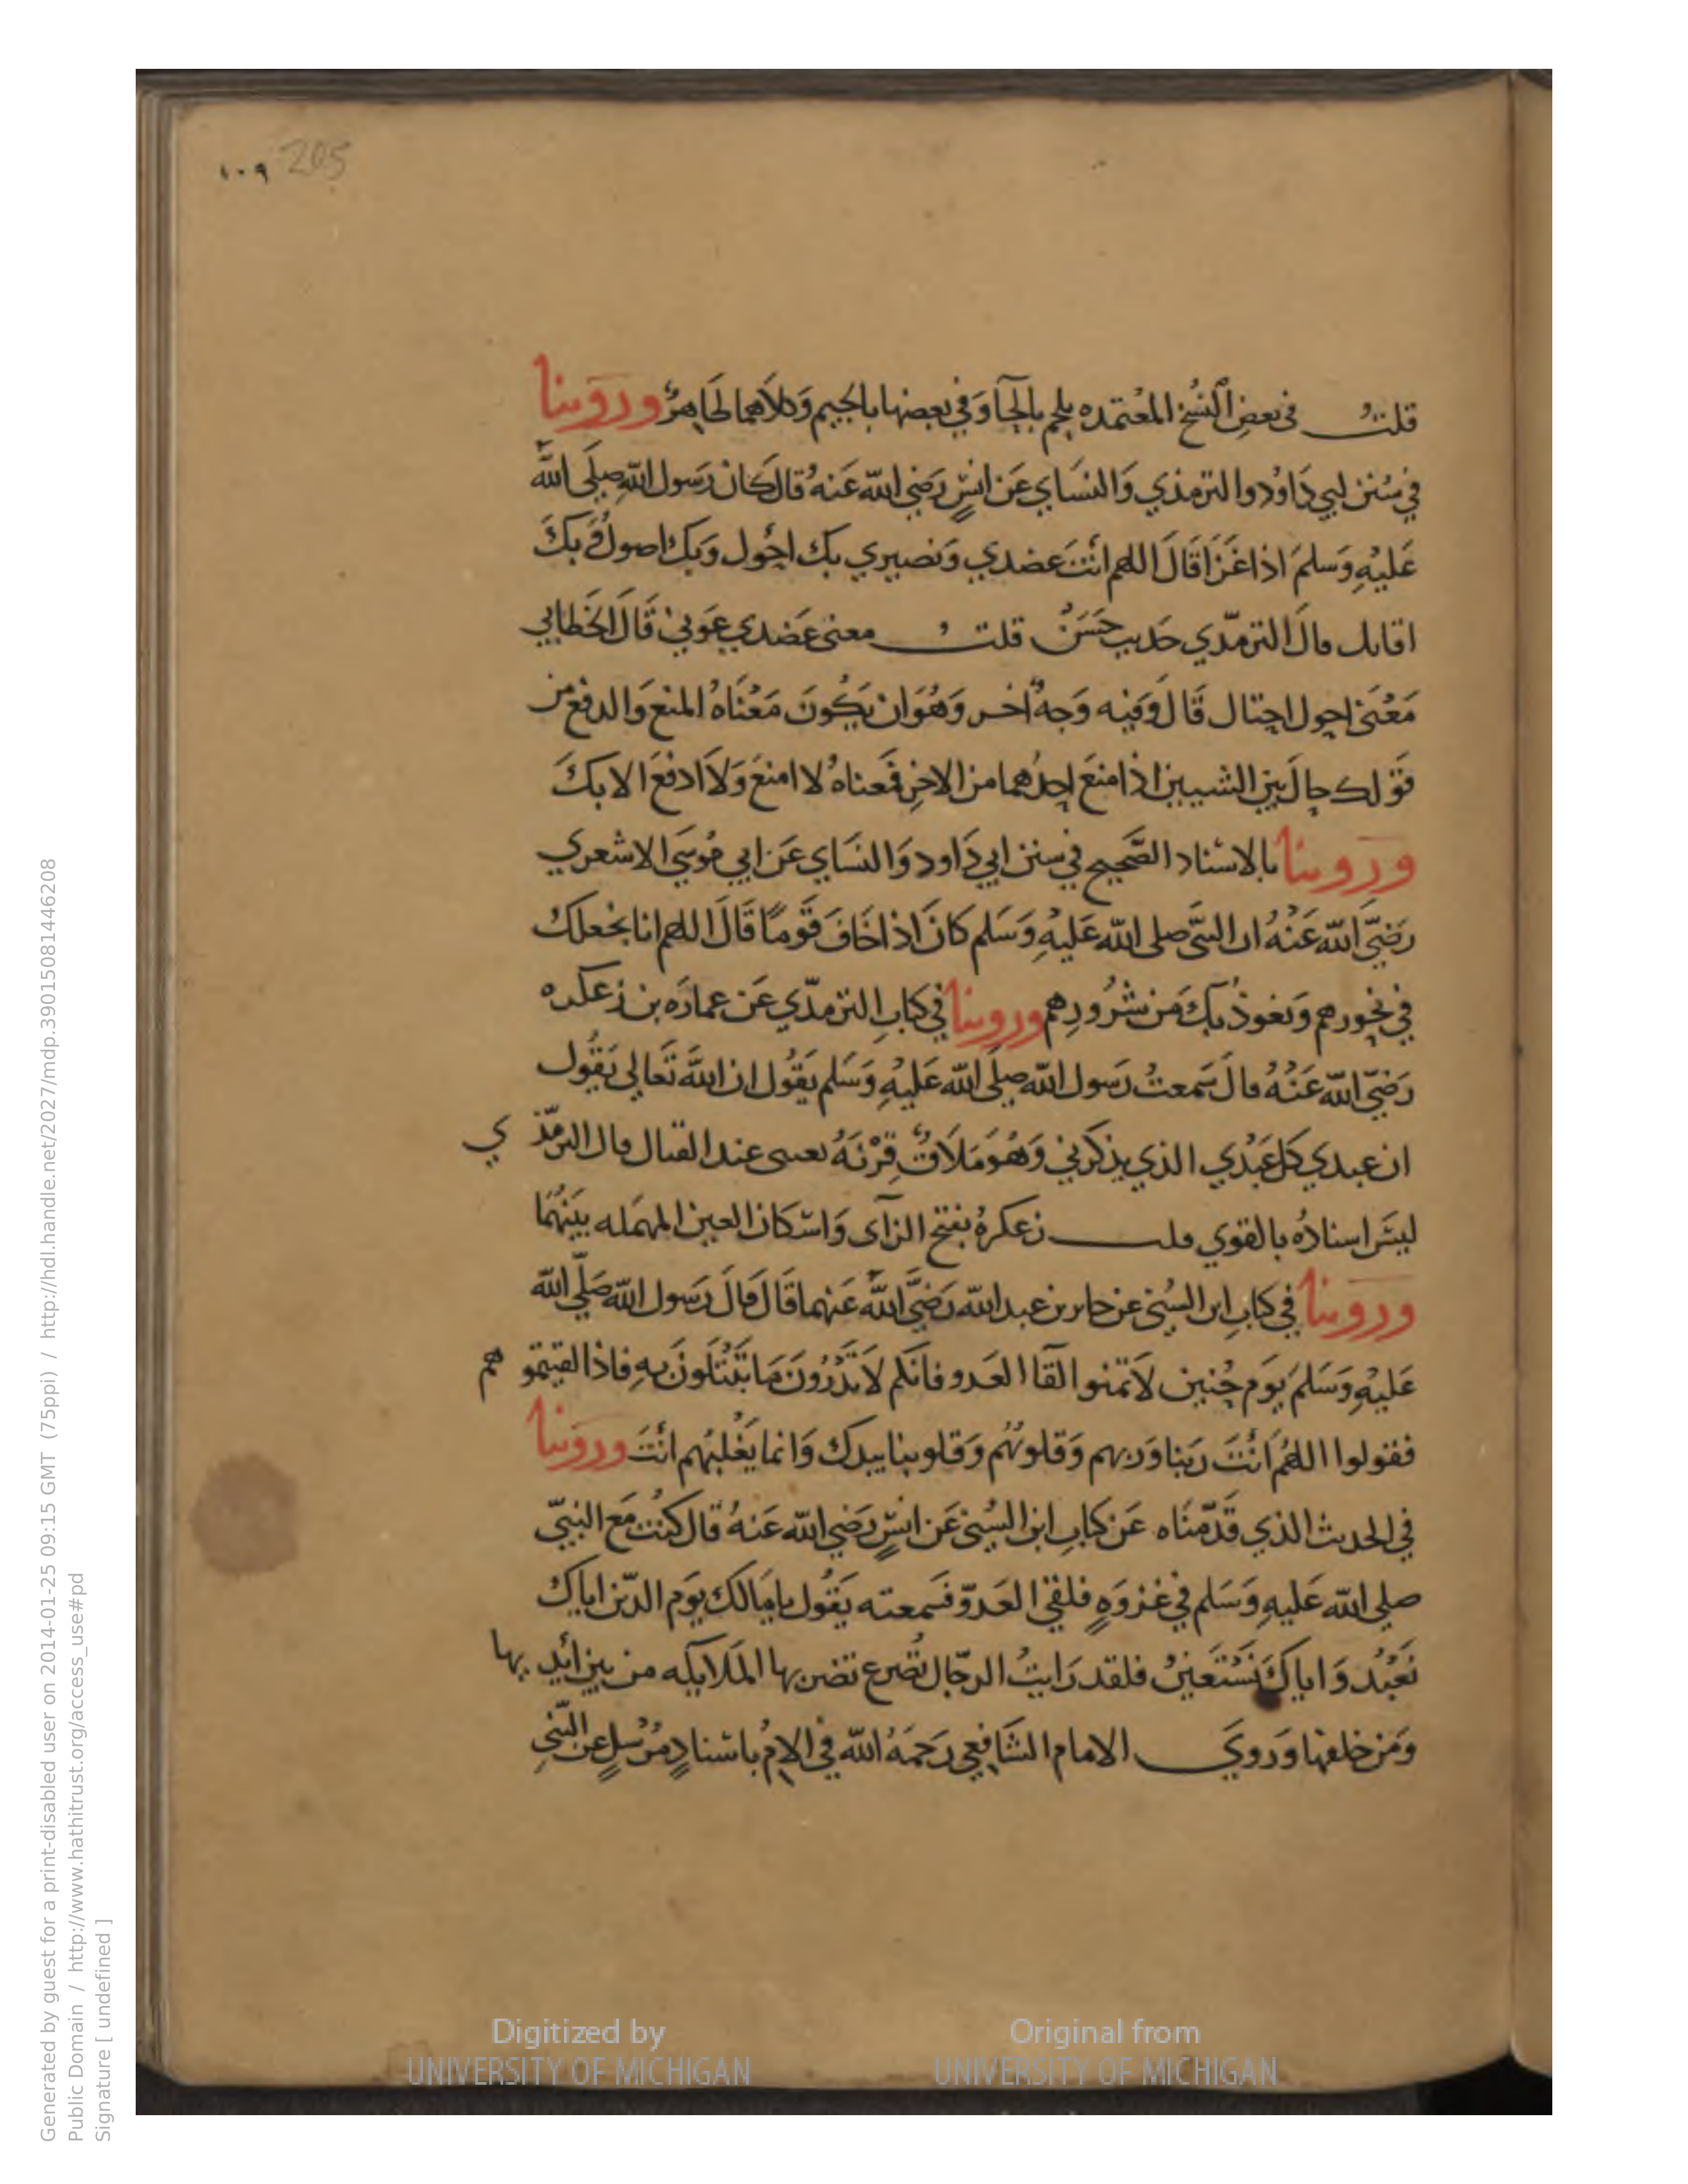 ١٠٩ 205
قلت في بعض النسخ المعتمده يلحم بالحآ وفي بعضها بالجيم وكلاهما ظاهر وروينا
في سنن ابي داود والترمذي والنساي عن انس رضي الله عنه قال كان رسول الله صلى الله
عليه وسلم اذا غزا قال اللهم انت عضدي ونصيري بك احول وبك اصول وبك
اقاتل قال الترمذي حديث حسن قلت معنى عضدي عوني قال الخطابي
معنى احول احتال قال وفيه وجه اخر وهو ان يكون معناه المنع والدفع من
قولك حال بين الشيين اذا منع احدهما من الاخر فمعناه لا امنع ولا ادفع الا بك
وروينا بالاسناد الصحيح في سنن ابي داود والنساي عن ابي موسى الاشعري
رضي الله عنه ان النبي صلى الله عليه وسلم كان اذا خاف قوما قال اللهم انا نجعلك
في نحورهم ونعوذ بك من شرورهم وروينا في كتاب الترمذي عن عماره بن زعكره
رضي الله عنه قال سمعت رسول الله صلى الله عليه وسلم يقول ان الله تعالى يقول
ان عبدي كل عبدي الذي يذكرني وهو ملاق قرنه يعني عند القتال قال الترمذي
ليس اسناده بالقوي قلت زعكرة بفتح الزآى واسكان العين المهمله بينهما
وروينا في كتاب ابن السني عن جابر بن عبد الله رضي الله عنهما قال قال رسول الله صلى الله
عليه وسلم يوم حنين لا تمنوا لقآ العدو فانكم لا تدرون ما تبتلون به فاذا لقيتموهم
فقولوا اللهم انت ربنا وربهم وقلوبهم وقلوبنا بيدك وانما يغلبهم انت وروينا
في الحديث الذي قدمناه عن كتاب ابن السني عن انس رضي الله عنه قال كنت مع النبي
صلى الله عليه وسلم في غزوه فلقي العدو فسمعته يقول يا مالك يوم الدين اياك
نعبد واياك نستعين فلقد رايت الرجال تصرع تضربها الملايكه من بين ايديها
ومن خلفها وروي الامام الشافعي رحمه الله في الام باسناد مرسل عن النبي
Digitized by
UNIVERSITY OF MICHIGAN
Original from
UNIVERSITY OF MICHIGAN
Generated by guest for a print-disabled user on 2014-01-25 09:15 GMT (75ppi) / http://hdl.handle.net/2027/mdp.39015081446208
Public Domain / http://www.hathitrust.org/access_use#pd
Signature [ undefined ]